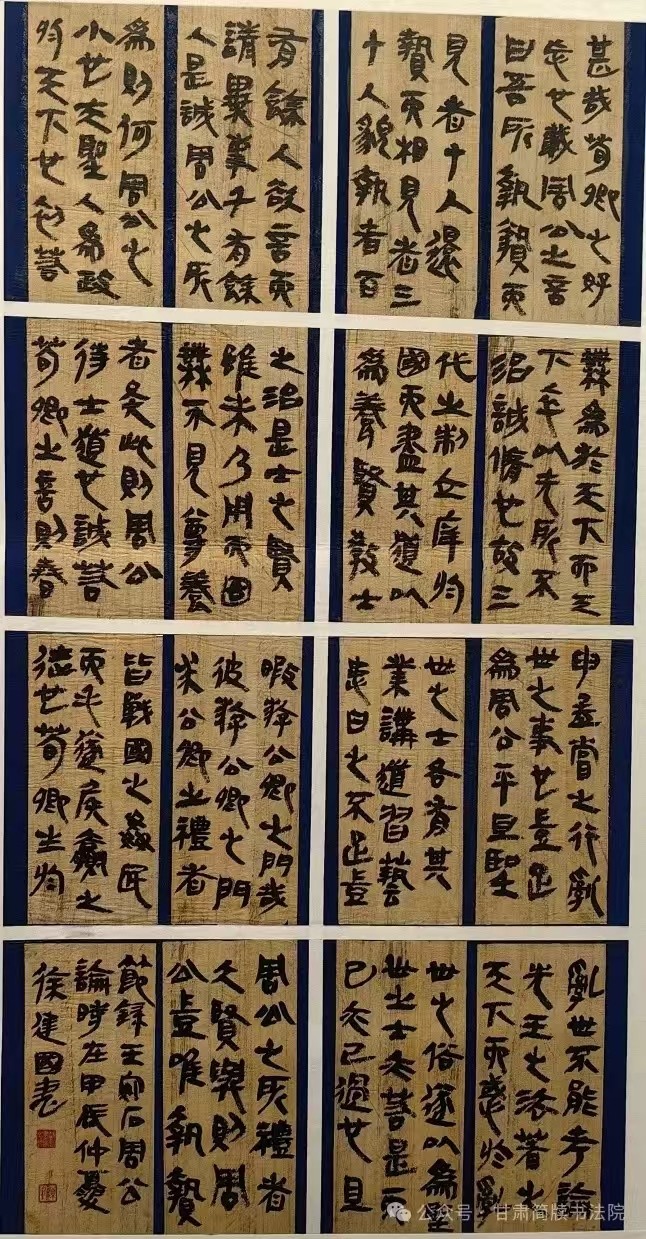 甚哉荀卿之好
妄也載周公之言
曰吾所執贄而
見者十人還
贄而相見者三
十人貌執者百
有餘人欲言而
請畢事千有餘
人是誠周公之所
為則何周公之
小也夫聖人為政
於天下也初若
無為於天下而天
下卒以无所不
治誠脩也故三
代之制立庠於
國而盡其道以
為養賢教士
之法是士之賢
雖未及用而固
無不見尊養
者矣此則周公
待士道也誠若
荀卿之言則春
申孟嘗之行亂
世之事也豈足
為周公乎且聖
世之士各有其
業講道習藝
患日之不足豈
暇游公卿之門哉
彼游公卿之門
求公卿之禮者
皆戰國之姦民
而毛遂侯嬴之
徒也荀卿生於
亂世不能考論
先王之法著之
天下而惑於亂
世之俗遂以為聖
世之士亦若是而
已亦已過也且
周公之所禮者
大賢與則周
公豈唯執贄
節錄王安石周公
論時在甲辰仲夏
徐建國書
公众号·甘肃简牍书法院